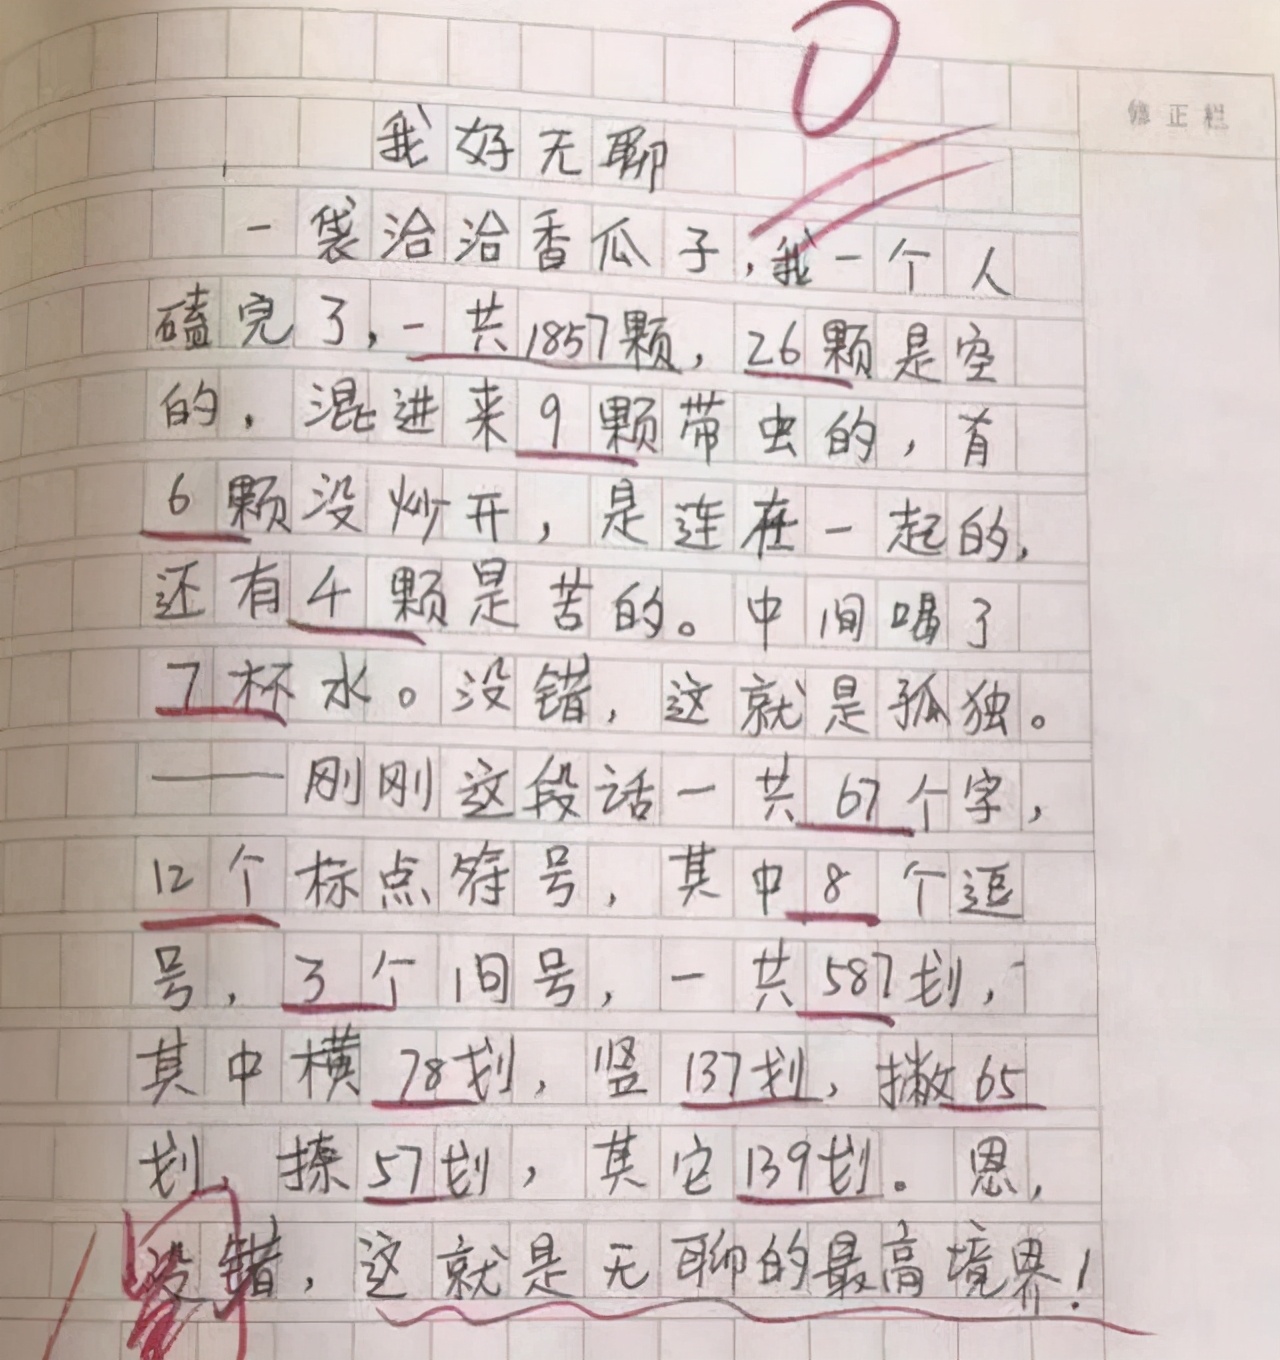 0
修正栏
我好无聊
一袋洽洽香瓜子,我一个人
磕完了,一共1857颗,26颗是空
的,混进来9颗带虫的,有
6颗没炒开,是连在一起的,
还有4颗是苦的。中间喝了
7杯水。没错,这就是孤独。
——刚刚这段话一共67个字,
12个标点符号,其中8个逗
号,3个间号,一共587划,
其中横78划,竖137划,撇65
划,捺57划,其它139划。恩,
没错,这就是无聊的最高境界!